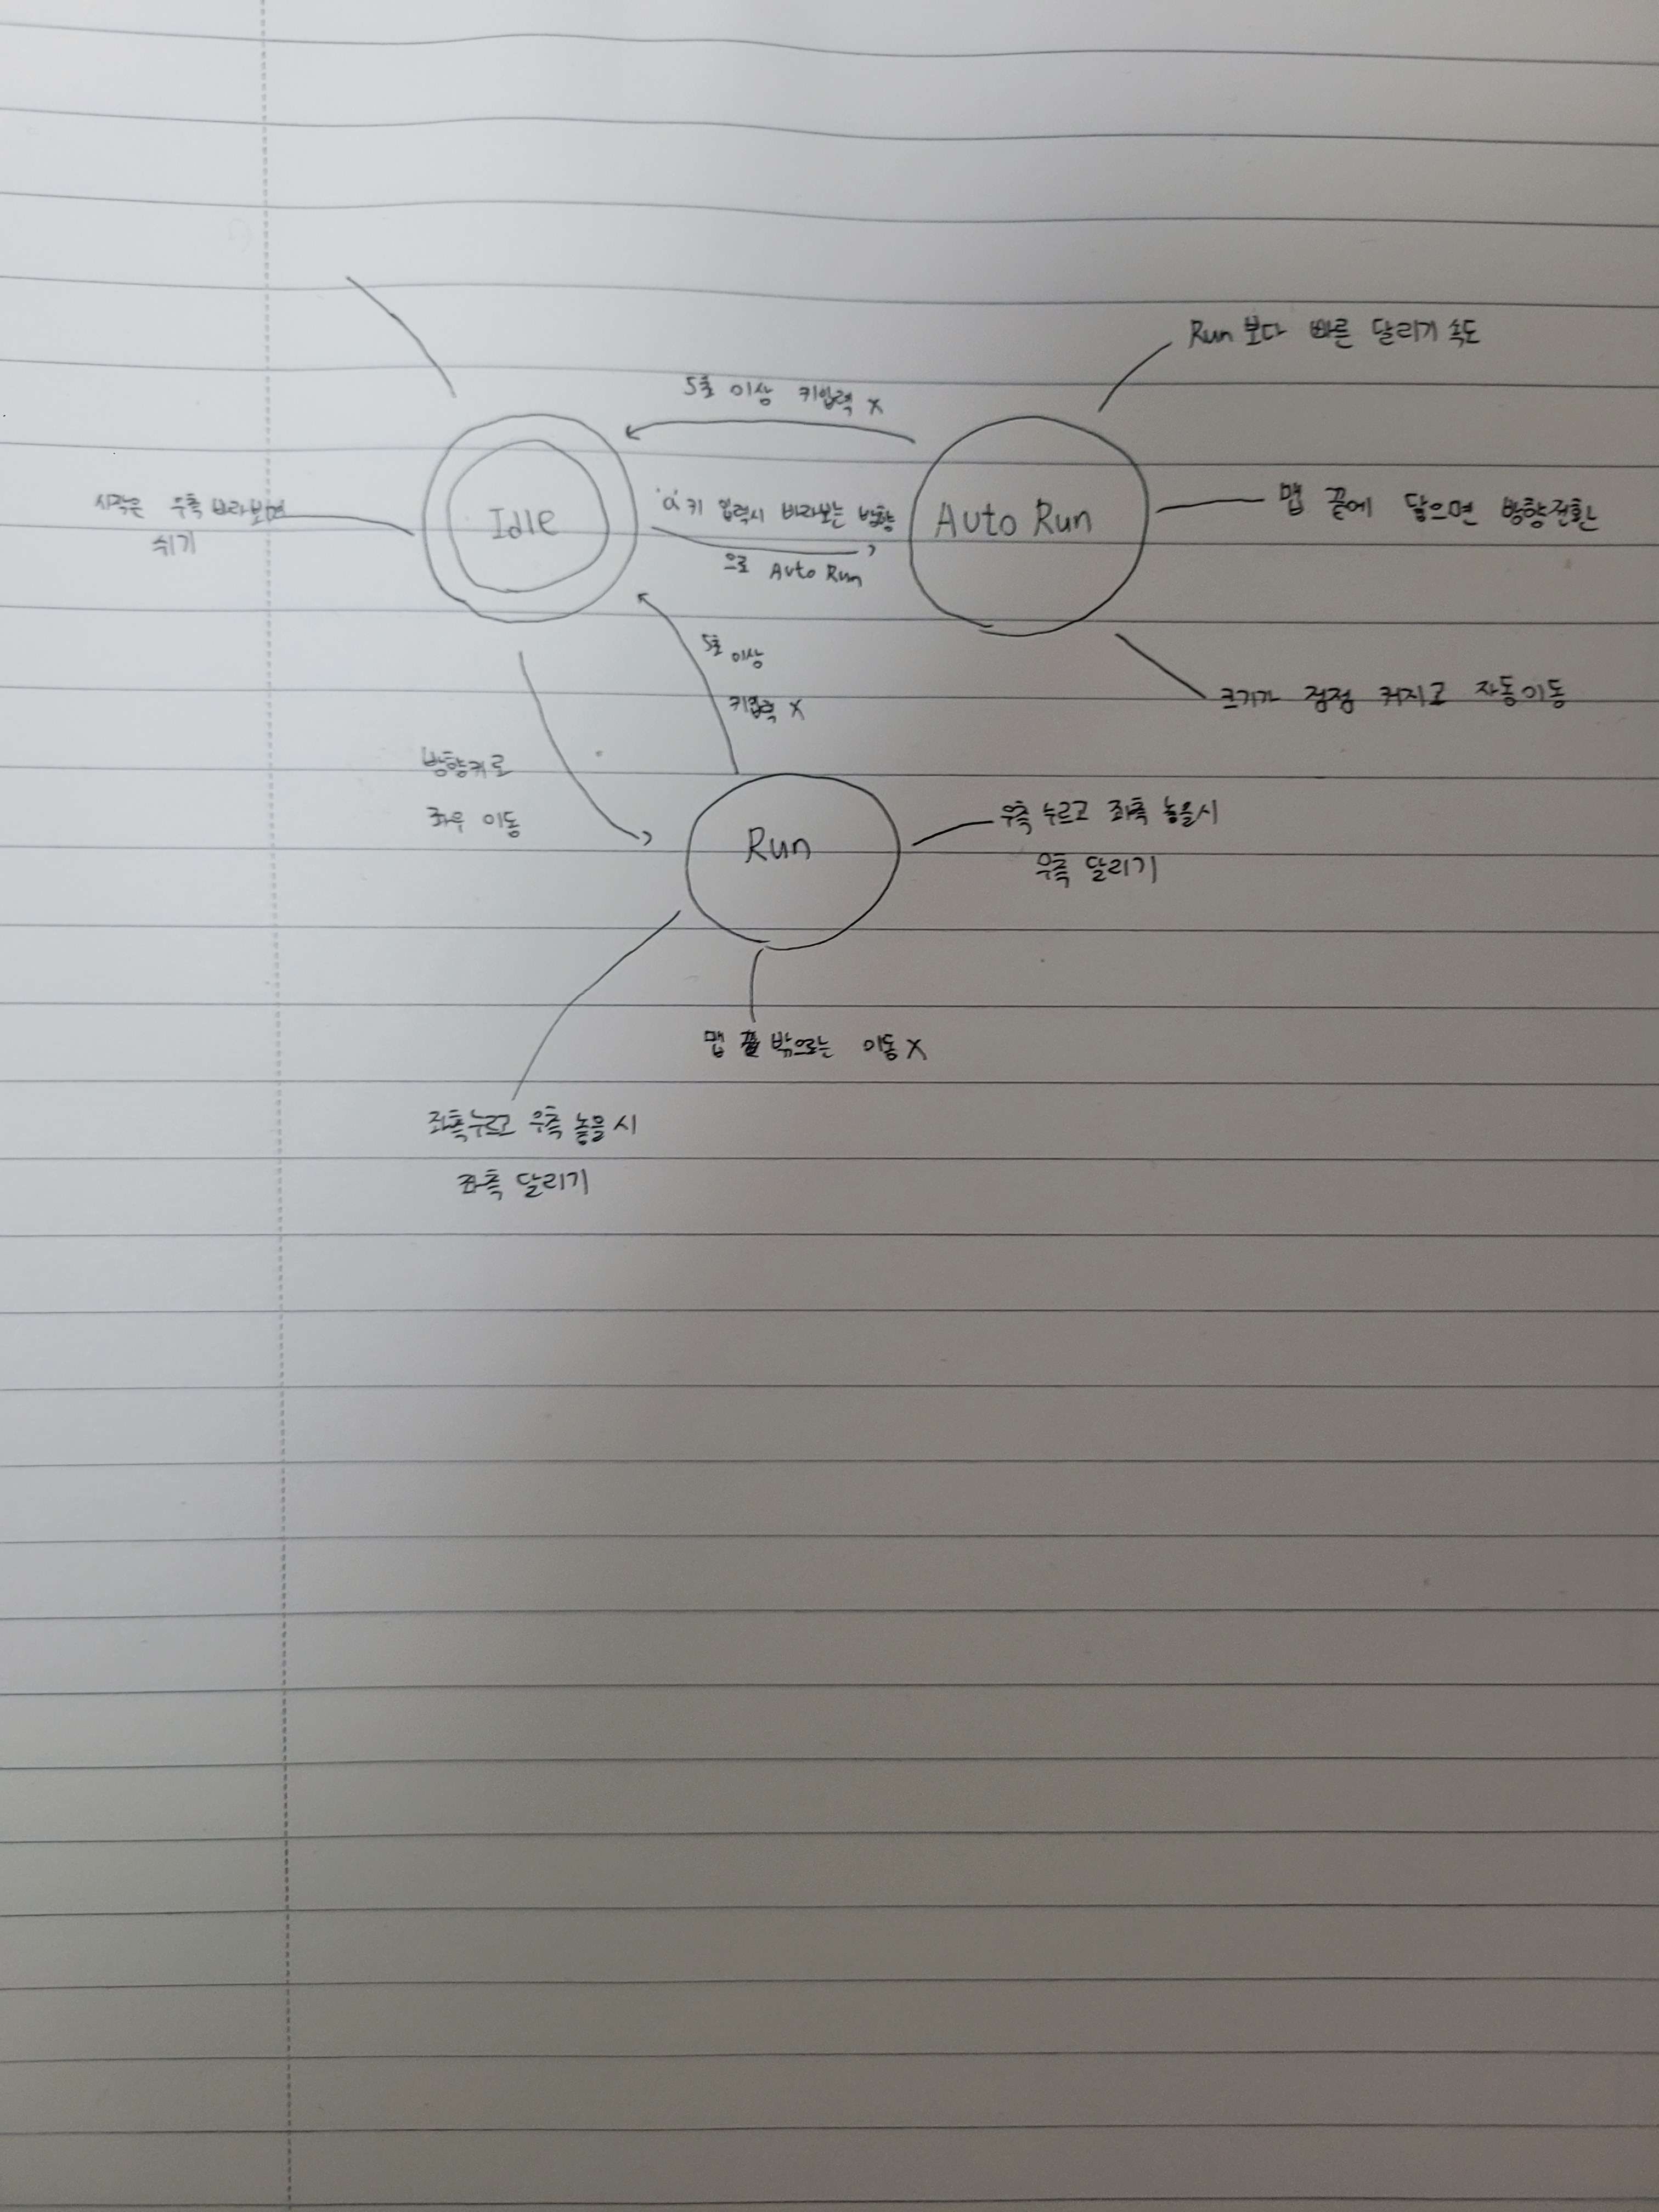 Run 보다 빠른 달리기 속도
5초 이상 키입력 X
시작은 우측 바라보면
쉬기
Idle
'a'키 입력시 바라보는 방향
으로 Auto Run
Auto Run
맵 끝에 닿으면 방향전환
5초 이상
키입력 X
크기가 점점 커지고 자동이동
방향키로
좌우 이동
Run
우측 누르고 좌측 놓을시
우측 달리기
맵 밖으로는 이동 X
좌측누르고 우측 놓을 시
좌측 달리기